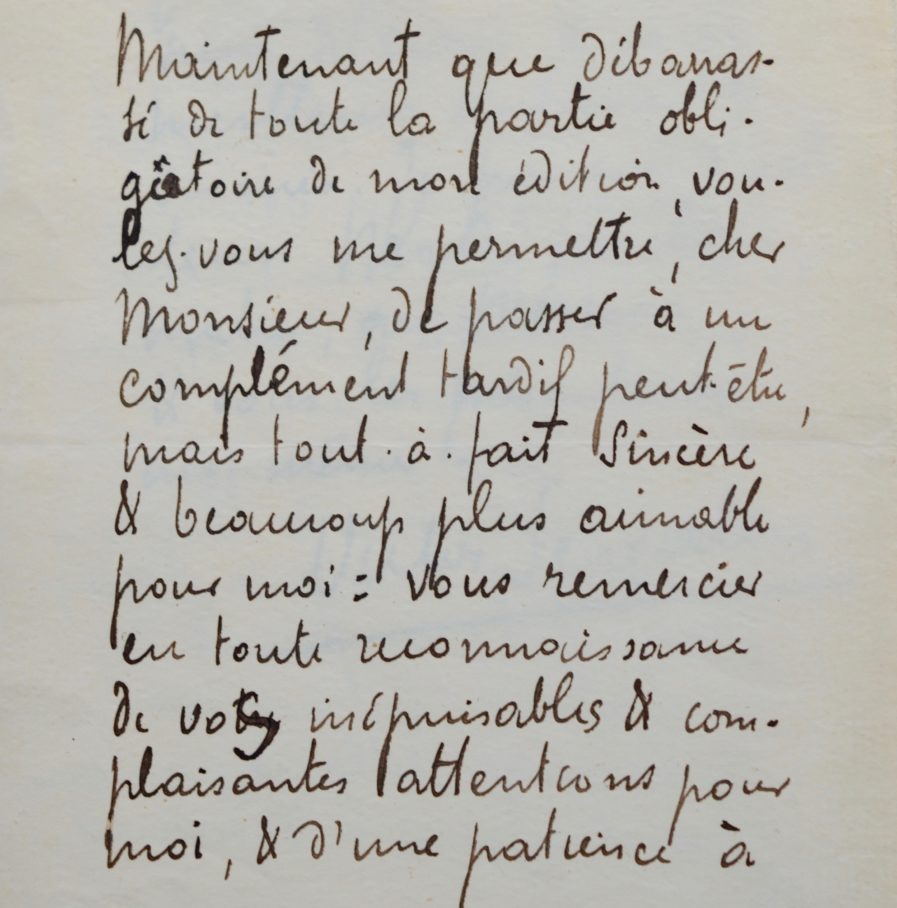 Maintenant que débarras-
sé de toute la partie obli-
gatoire de mon édition, vou-
lez-vous me permettre, cher
Monsieur, de passer à un
complément tardif peut-être,
mais tout-à-fait sincère
& beaucoup plus aimable
pour moi : vous remercier
en toute reconnaissance
de vos inépuisables & com-
plaisantes attentions pour
moi, & d'une patience à